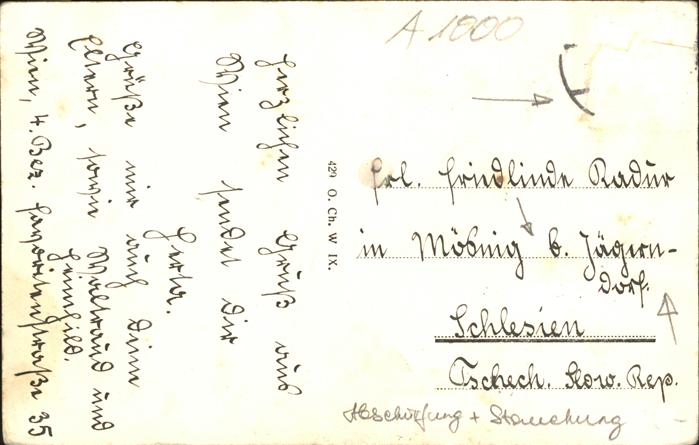 A 1000
Herzlichen Gruß aus
Wien sendet Dir
Herta.
Grüße mir auch Deine
Eltern, sowie Waltraud und
Heimhild.
Wien, 4. Bez. Favoritenstraße 35
429 O. Ch. W IX.
Frl. Friedlinde Radur
in Mösnig b. Jägern-
dorf.
Schlesien
Tschech. Slow. Rep.
Abschürfung + Stauchung